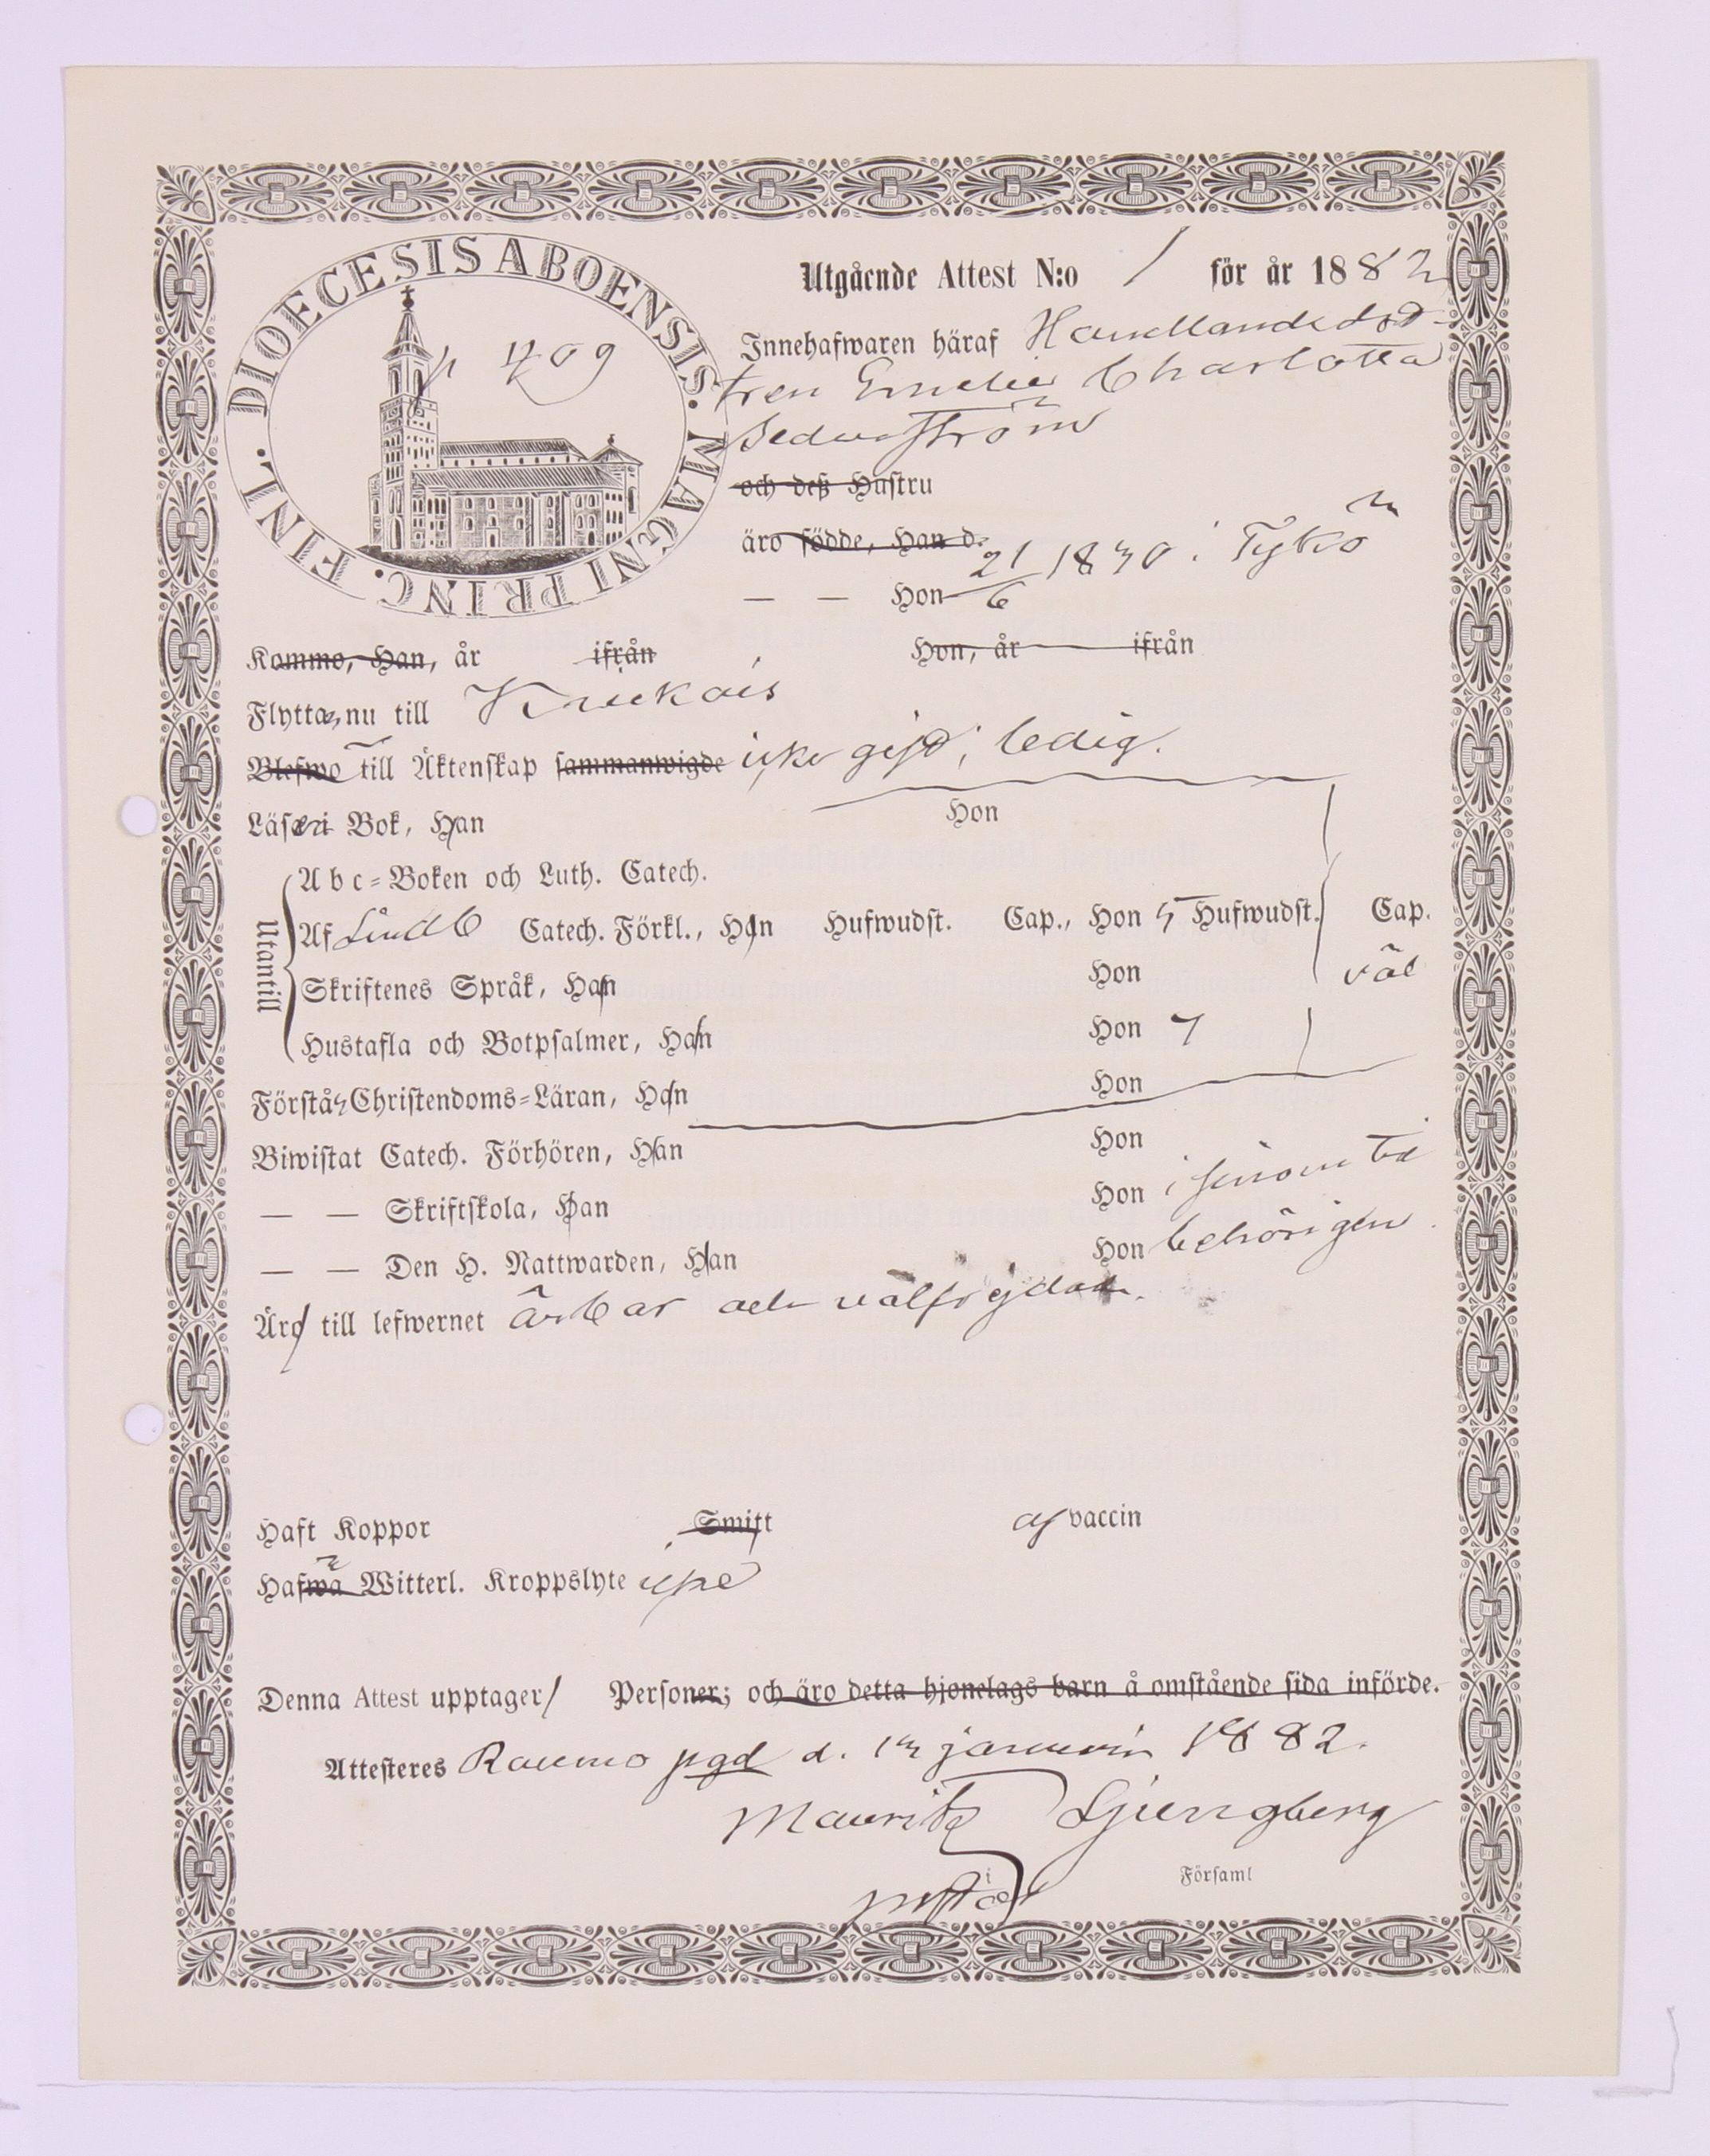 DIOECESIS ABOENSIS. MAGNI PRINC. FINL.
p 409
Utgående Attest N:o 1 för år 1882
Innehafwaren häraf Handlandedot-
tren Emelie Charlotta
och deß Hustru
äro födde, Han d.
— — Hon 21/6 1840 i Tykö
Kommo, Han, år ifrån Hon, år ifrån
Flyttar nu till
Blefwo till Äktenskap sammanwigde icke gift; ledig.
Läser i Bok, Han Hon
Utantill
A b c=Boken och Luth. Catech.
Af Lindb Catech. Förkl., Han Hufwudst. Cap., Hon 5 Hufwudst. Cap.
Skriftenes Språk, Han Hon väl
Hustafla och Botpsalmer, Han Hon
Förstår Christendoms=Läran, Han Hon
Biwistat Catech. Förhören, Han Hon
— — Skriftskola, Han Hon i sinom tid
— — Den H. Nattwarden, Han Hon behörigen.
Äro till lefwernet ärbar och välfrejdad.
Haft Koppor Smitt af vaccin
Hafwa Witterl. Kroppslyte icke
Denna Attest upptager 1 Personer; och äro detta hjonelags barn å omstående sida införde.
Attesteres Raumo pgd d. januari 1882.
Mauritz Ljungberg
i Församl